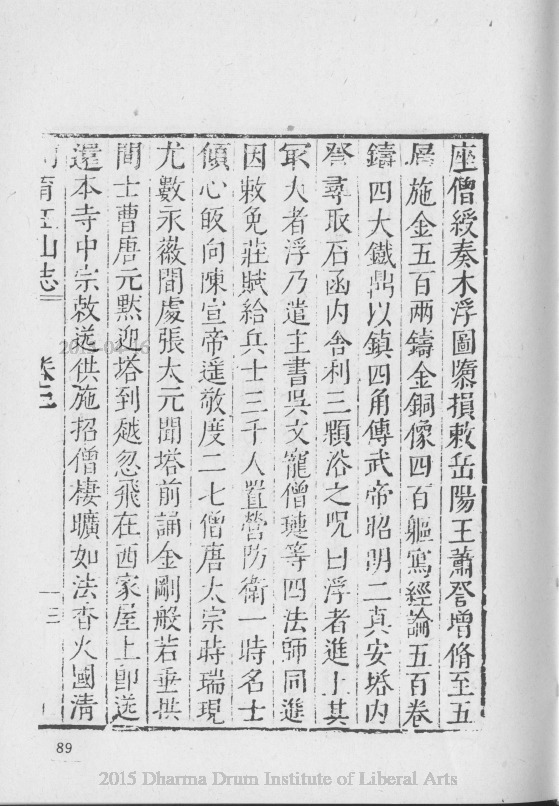 座僧綬奏木浮圖隳損敕岳陽王蕭詧增脩至五
層施金五百兩鑄金銅像四百軀寫經論五百卷
鑄四大鐵鼎以鎮四角傳武帝昭明二真安塔内
詧尋取石函内舍利三顆浴之呪曰浮者進上其
冣大者浮乃遣主書吳文寵僧璉等四法師同進
因敕免莊賦給兵士三千人置營防衛一時名士
傾心皈向陳宣帝遥敬度二七僧唐太宗時瑞現
尤數永徽間處張太元聞塔前誦金剛般若垂拱
間士曹唐元默迎塔到越忽飛在西家屋上卽送
還本寺中宗敕送供施招僧棲曠如法香火國清
育王山志
卷之
一三
2015-04-16
89
2015 Dharma Drum Institute of Liberal Arts